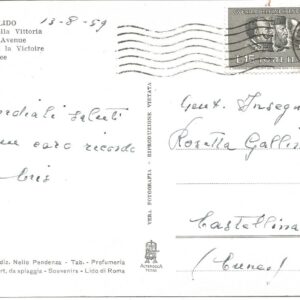 LIDO
13-8-59
lla Vittoria
Avenue
la Victoire
ee
ordiali saluti
caro ricordo
Cris
diz. Nello Pendenza - Tab. - Profumeria
rt. da spiaggia - Souvenirs - Lido di Roma
VERA FOTOGRAFIA - RIPRODUZIONE VIETATA
ALTEROCCA
TERNI
Gent. Insegn
Rosetta Gallin
Castellina
(Cuneo)